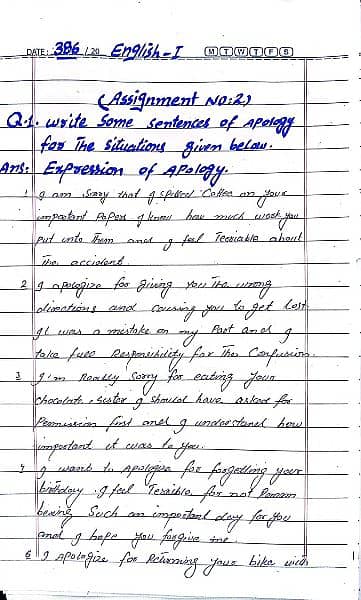 DATE: 386/20 English-I M T W T F S
(Assignment No:2)
Q.1. write Some sentences of Apology
for The Situations given below.
Ans: Expression of Apology.
1 I am Sorry that I spilled Coffee on your
important Papers I know how much work you
put into Them and I feel Terriable about
The accident.
2 I apologize for giving you The wrong
directions and causing you to get lost.
It was a mistake on my Part and I
take full Responsibility for The Confusion.
3 I'm Really Sorry for eating your
chocolate, Sister I should have asked for
Permission first and I understand how
important it was to you.
4 I want to Apologize for forgetting your
birthday. I feel Terrible for not Remem
bering Such an important day for you
and I hope you forgive me.
5 I Apologize for Returning your bike with